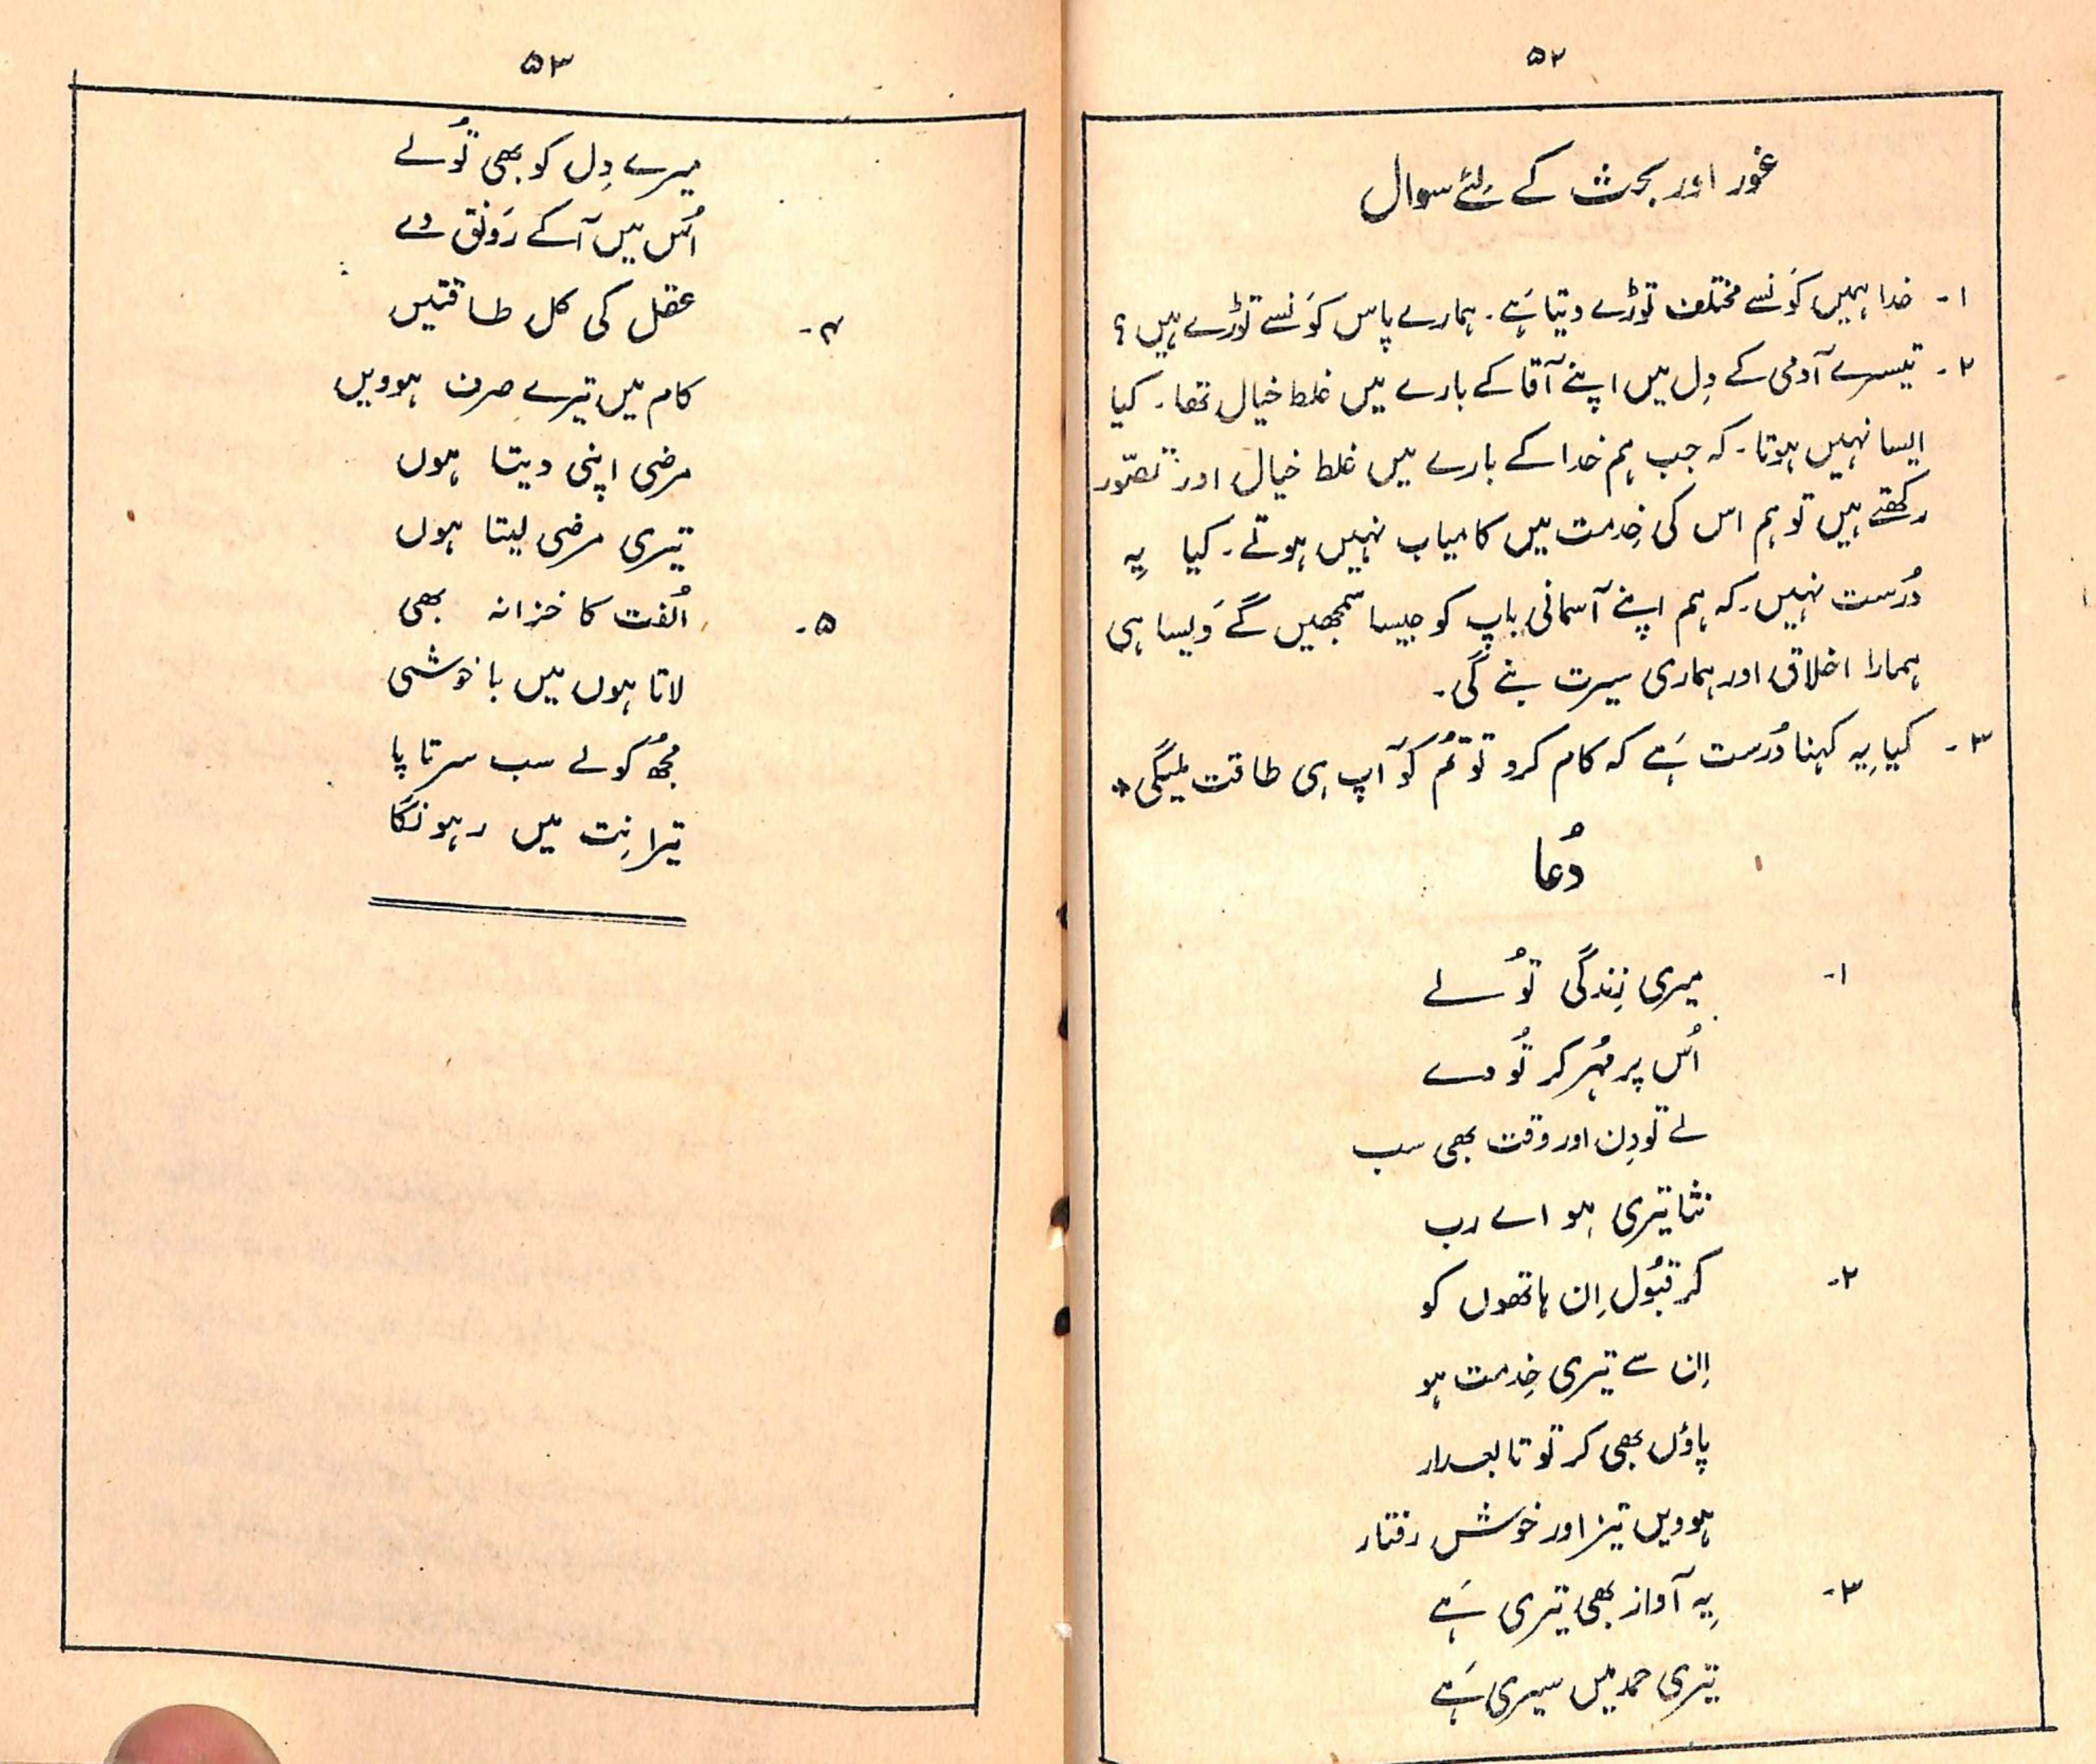 ۵۲
غور اور بحث کے لئے سوال
۱- خدا ہمیں کَونسے مختلف توڑے دیتا ہَے۔ ہمارے پاس کَونسے توڑے ہیں؟
۲- تیسرے آدمی کے دِل میں اپنے آقا کے بارے میں غلط خیال تھا۔ کیا
ایسا نہیں ہوتا۔ کہ جب ہم خدا کے بارے میں غلط خیال اور تصّور
رکھتے ہیں تو ہم اس کی خِدمت میں کامیاب نہیں ہوتے۔ کیا یِہ
دُرست نہیں۔ کہ ہم اپنے آسمانی باپ کو جیسا سمجھیں گے وَیسا ہی
ہمارا اخلاق اور ہماری سیرت بنے گی۔
۳- کیا یِہ کہنا دُرست ہَے کہ کام کرو تو تُم کو آپ ہی طاقت ملیگی*
دُعا
۱- میری زِندگی تُو لے
اُس پر مُہر کر تُو دے
لے تو دِن اور وقت بھی سب
ثنا تیری ہو اے رب
۲- کر قبُول اِن ہاتھوں کو
اِن سے تیری خِدمت ہو
پاؤں بھی کر تو تابعدار
ہوویں تیز اور خوش رفتار
۳- یِہ آواز بھی تیری ہَے
تیری حمد میں سیری ہَے
۵۳
میرے دِل کو بھی تُو لے
اُس میں آ کے رَونق دے
۴- عقل کی کل طاقتیں
کام میں تیرے صرف ہوویں
مرضی اپنی دیتا ہوں
تیری مرضی لیتا ہوں
۵- اُلفت کا خزانہ بھی
لاتا ہوں میں با خوشی
مُجھ کو لے سب سرتا پا
تیرا نِت میں رہونگا